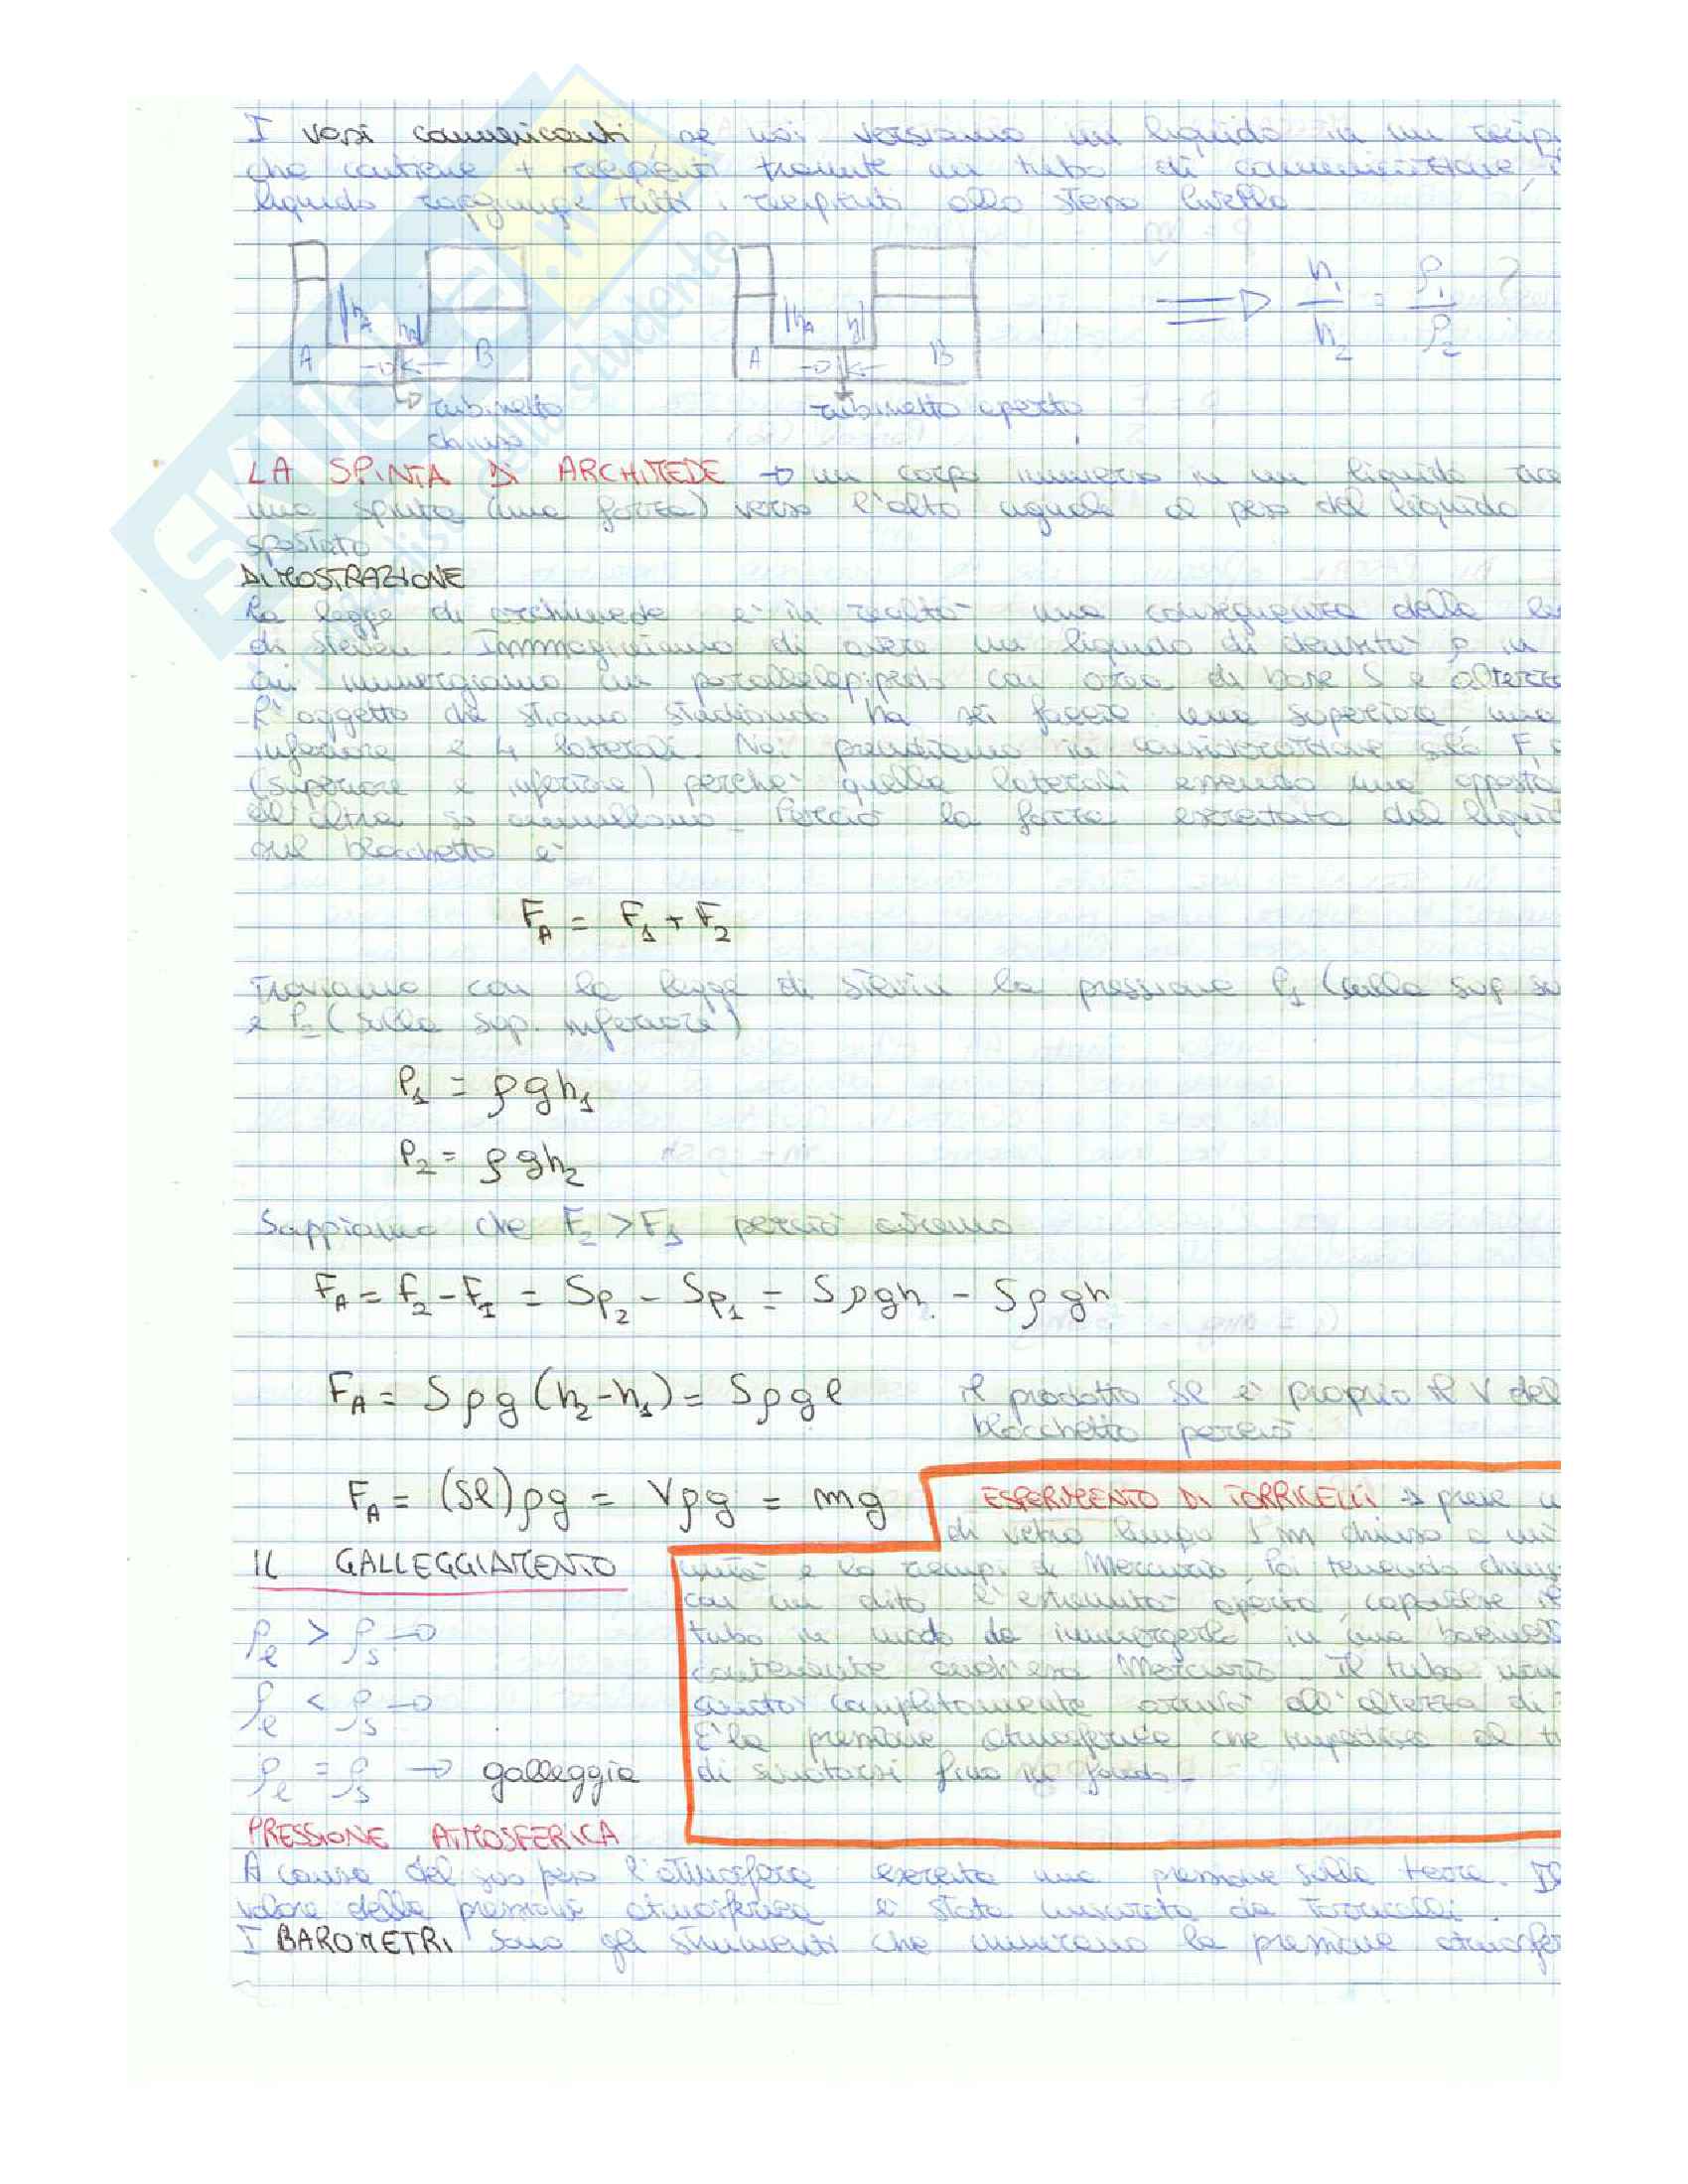 I vasi comunicanti, se noi versiamo un liquido in un recip
che contiene + recipienti tramite un tubo di comunicazione,
liquido raggiunge tutti i recipienti allo stesso livello
A hA B
rubinetto
chiuso
A hA B
rubinetto aperto
h1/h2 = ρ1/ρ2 ?
LA SPINTA DI ARCHIMEDE → un corpo immerso in un liquido
una spinta (una forza) verso l'alto uguale al peso del liquido
spostato
DIMOSTRAZIONE
La legge di archimede è in realtà una conseguenza della
di Steven. Immaginiamo di avere un liquido di densità ρ in
cui immergiamo un parallelepipedo con area di base S e altezza
L'oggetto che stiamo studiando ha sei faccie una superiore, una
inferiore e 4 laterali. Noi prendiamo in considerazione solo F
(superiore e inferiore) perchè quelle laterali essendo una opposta
all'altra si annullano. Perciò la forza esercitata dal liquid
sul blocchetto è
FA = F1 + F2
Troviamo con la legge di Stevin la pressione P1 (sulla sup. su
e P2 (sulla sup. inferiore)
P1 = ρgh1
P2 = ρgh2
Sappiamo che F2 > F1 perciò avremo
FA = F2 - F1 = Sp2 - Sp1 = Sρgh - Sρgh
FA = Sρg(h2-h1) = Sρgl
il prodotto Sl è proprio il V del
blocchetto perciò:
FA = (Sl)ρg = Vρg = mg
ESPERIMENTO DI TORRICELLI → prese
di vetro lungo 1 m chiuso a un'
unità e lo riempì di Mercurio, Poi tenendo
con un dito l'estremità aperta, capovolse il
tubo in modo da immergerlo in una
contenente anch'essa Mercurio. Il tubo
completamente all'altezza di
È la pressione atmosferica che impedisce al
di svuotarsi fino in fondo.
IL GALLEGGIAMENTO
ρl > ρs →
ρl < ρs →
ρl = ρs → galleggia
PRESSIONE ATMOSFERICA
A causa del suo peso l'atmosfera esercita una pressione sulla terra. Il
valore della pressione atmosferica è stato misurato da Torricelli.
I BAROMETRI sono gli strumenti che misurano la pressione atmosfer